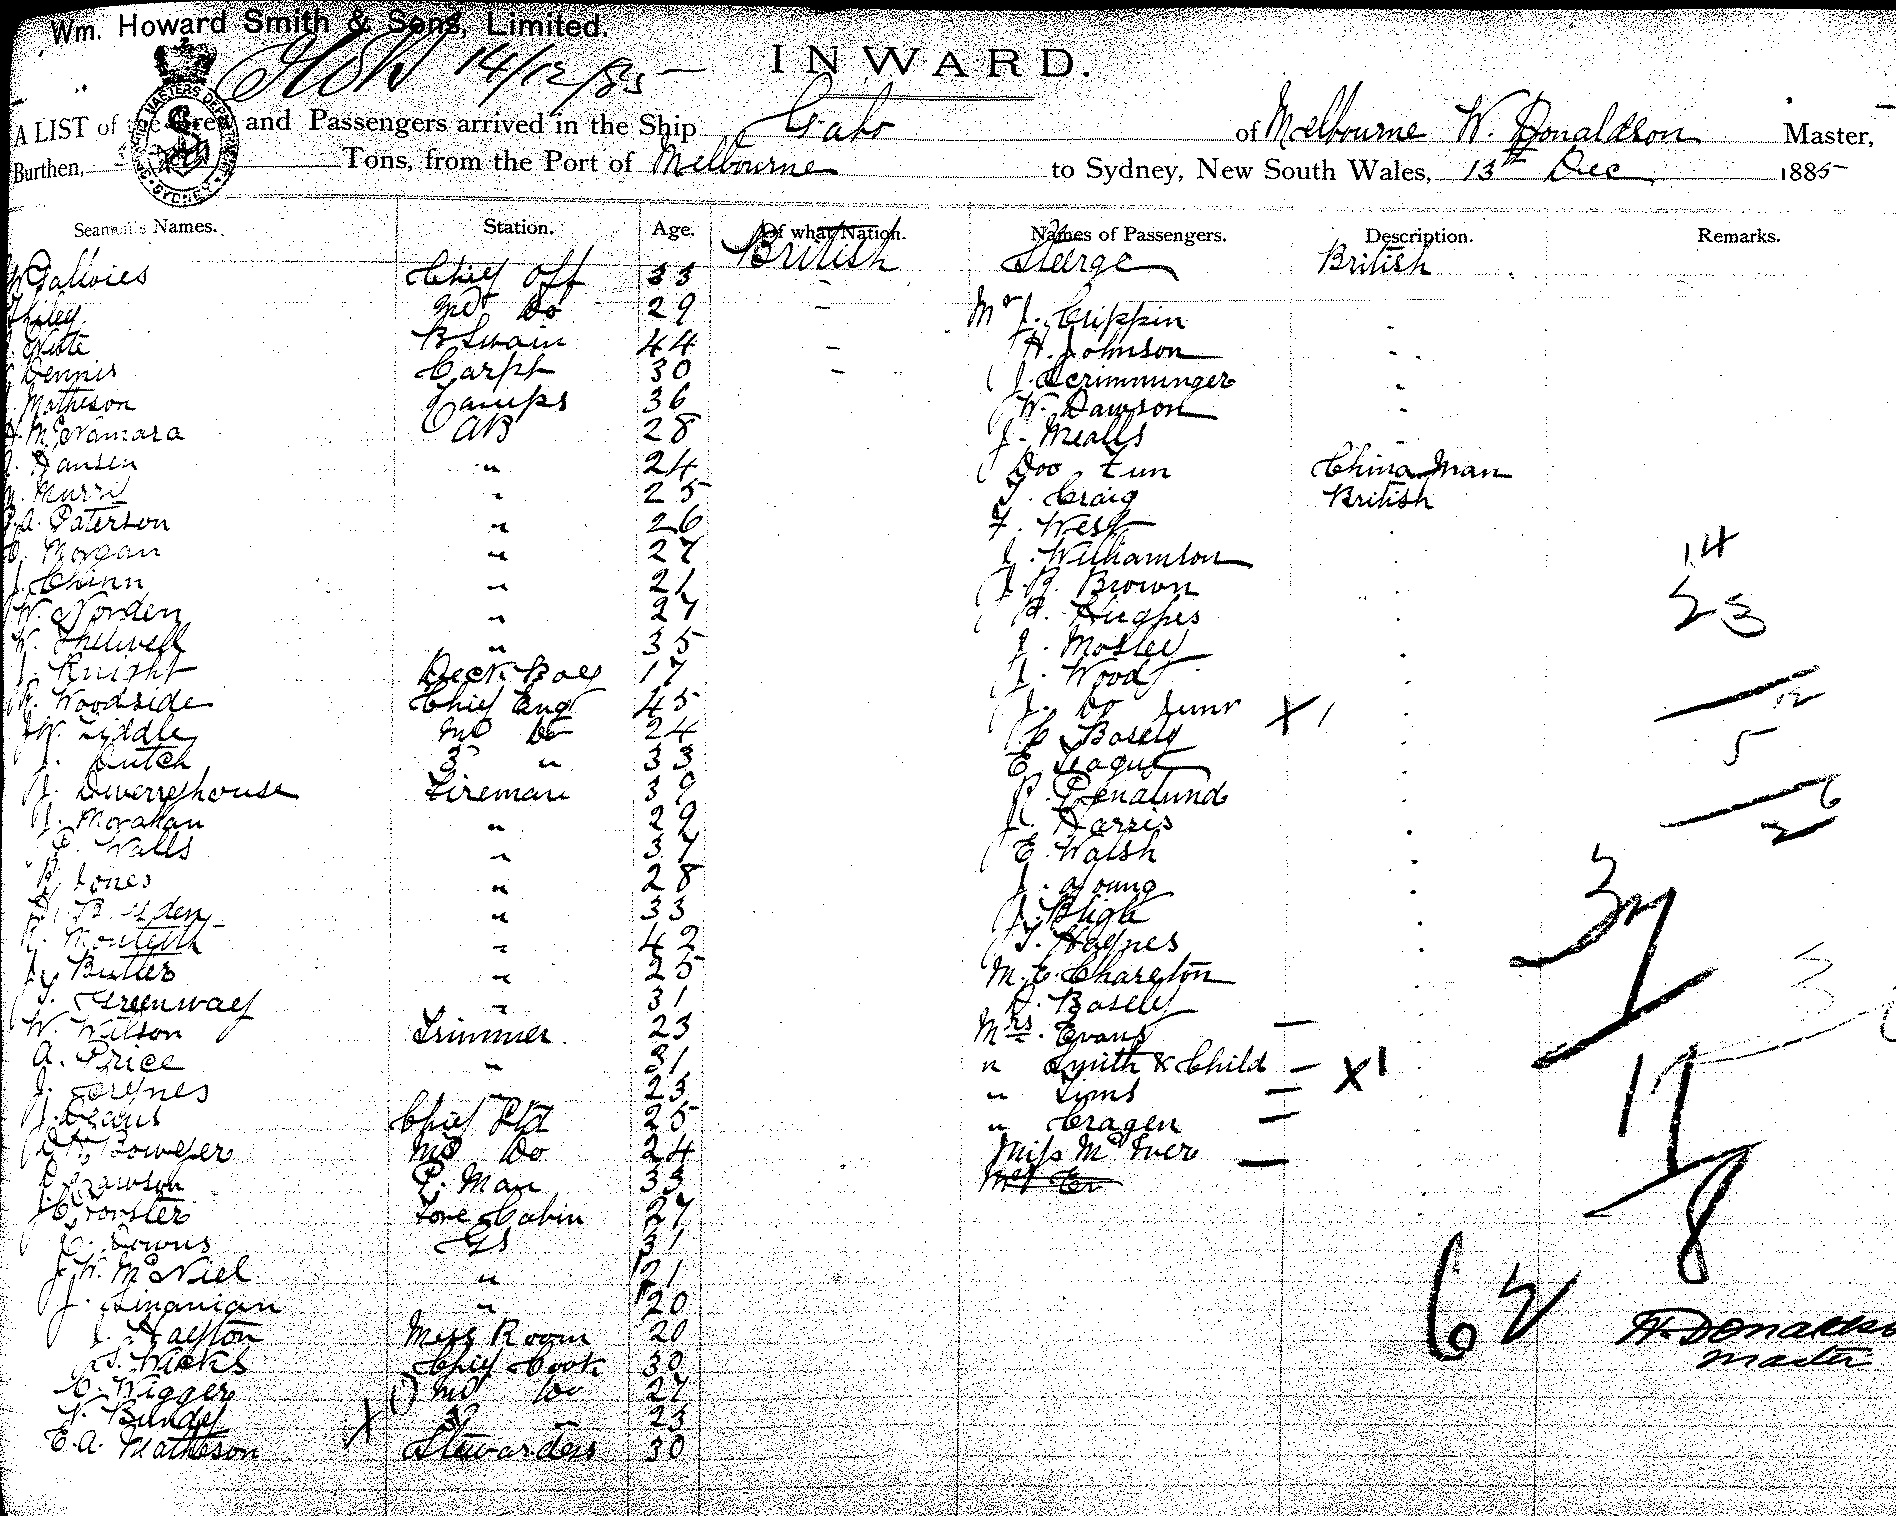 Wm. Howard Smith & Sons, Limited.
14/12/85
INWARD.
A LIST of the Crew and Passengers arrived in the Ship Gabo of Melbourne W. Donaldson Master,
Burthen, Tons, from the Port of Melbourne to Sydney, New South Wales, 13th Dec 1885
Seamen's Names. Station. Age. Of what Nation. Names of Passengers. Description. Remarks.
British Steerge British
Chief Off 33
2nd Do 29 Mr J. Crippin
BSwain 44 H. Johnson
Dennis Carpt 30 J. Scrimminger
Matheson Lamps 36 W. Dawson
H. McNamara AB 28 J. Mealls
Hansen " 24 Goo Fun China Man
Murril " 25 T. Craig British
P.A. Paterson " 26 F. West
Morgan " 27 J. Williamson 14
J. Chinn " 21 J. R. Brown
W. Norden " 27 Hughes 23
W. Thelwell " 35 J. Mosley
J. Knight Deck Boy 17 J. Wood
R. Woodside Chief Eng 45 J. Do Junr X 1
W. Liddle 2nd Do 24 C Bosely 5
J. Dutch 3 " 33 E. League
J. Dwerryhouse Fireman 39 R.
J. Morahan " 29 J. Harris 2
Walls " 37 E. Walsh
Jones " 28 J. Young
" 33 J. Bligh 37
R. Monteith " 42 T. Haynes
J. Butler " 25 M. E. Charlton
T. Greenway " 31 Bosely 3
W. Wilson Trimmer 23 Mrs. Evans
A. Price " 31 " Smith & Child X 1
J. " 23 " Sims 17
J. Deans Chief Std 25 " Cragen
Bowyer 2nd Do 24 Miss McIver
Dawson P. Man 33
Fore Cabin 27 8
Downs GS 31
J. W. McNiel " 21
J. " 20 62
J. Hayton Mess Room 20 W. Donaldson
Wicks Chief Cook 30 Master
C. Wigger 2nd Do 27
Bundy 3 - 23
E. A. Matheson X Stewardess 30